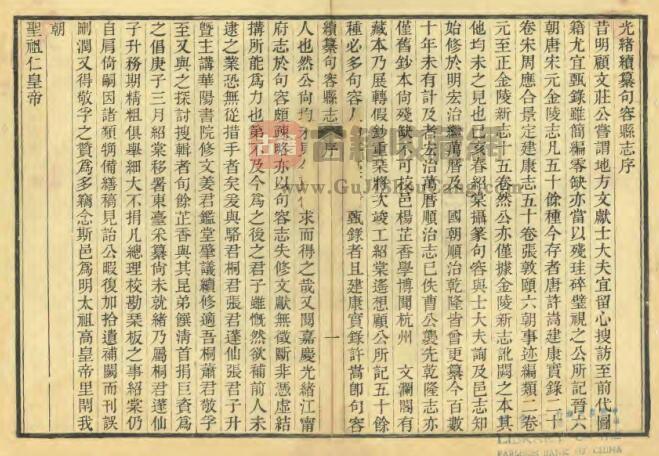 光緒續纂句容縣志序
昔明顧文莊公嘗謂地方文獻士大夫宜留心搜訪至前代圖
籍尤宜甄錄雖簡編零缺亦當以殘珪碎璧視之公所記晉六
朝唐宋元金陵志凡五十餘種今存者唐許嵩建康實錄二十
卷宋周應合景定建康志五十卷張敦頤六朝事迹編類二卷
元至正金陵新志十五卷然公亦僅據金陵新志訛闕之本其
他均未之見也己亥春紹棠攝篆句容與士大夫詢及邑志知
始修於明宏治繼萬曆及 國朝順治乾隆皆曾更纂今百數
十年未有計及者宏治萬曆順治志已佚曹公襲先乾隆志亦
僅舊鈔本尙殘缺 可 邑楊芷香學博聞杭州 文瀾閣有
藏本乃展轉假鈔重栞將次竣工紹棠遙想顧公所記五十餘
種必多句容 甄錄者且建康實錄許嵩卽句容
人也然公尙均 求而得之哉又閱嘉慶光緒江甯
府志於句容頗疎略亦以句容志失修文獻無徵斷非憑虛結
搆所能爲力也弟不及今爲之後之君子雖慨然欲補前人未
逮之業恐無從措手者矣爰與駱君桐君張君蓬仙張君子升
曁主講華陽書院修文姜君鑑堂肇議續修適吾桐蕭君敬孚
至又與之探討搜輯者句餘芷香與其昆弟饌淸首捐巨資爲
之倡庚子三月紹棠移署東臺采纂尙未就緒乃屬桐君蓬仙
子升務期精粗俱舉細大不捐凡總理校勘栞板之事紹棠仍
自肩倚嗣因諸類犕備繕稿見詒公暇復加拾遺補闕而刊誤
剛潤又得敬孚之贊爲多竊念斯邑爲明太祖高皇帝里閈我
朝
聖祖仁皇帝
續纂句容縣志 序
一
www.GuJiShouCang.com
LIBRARY